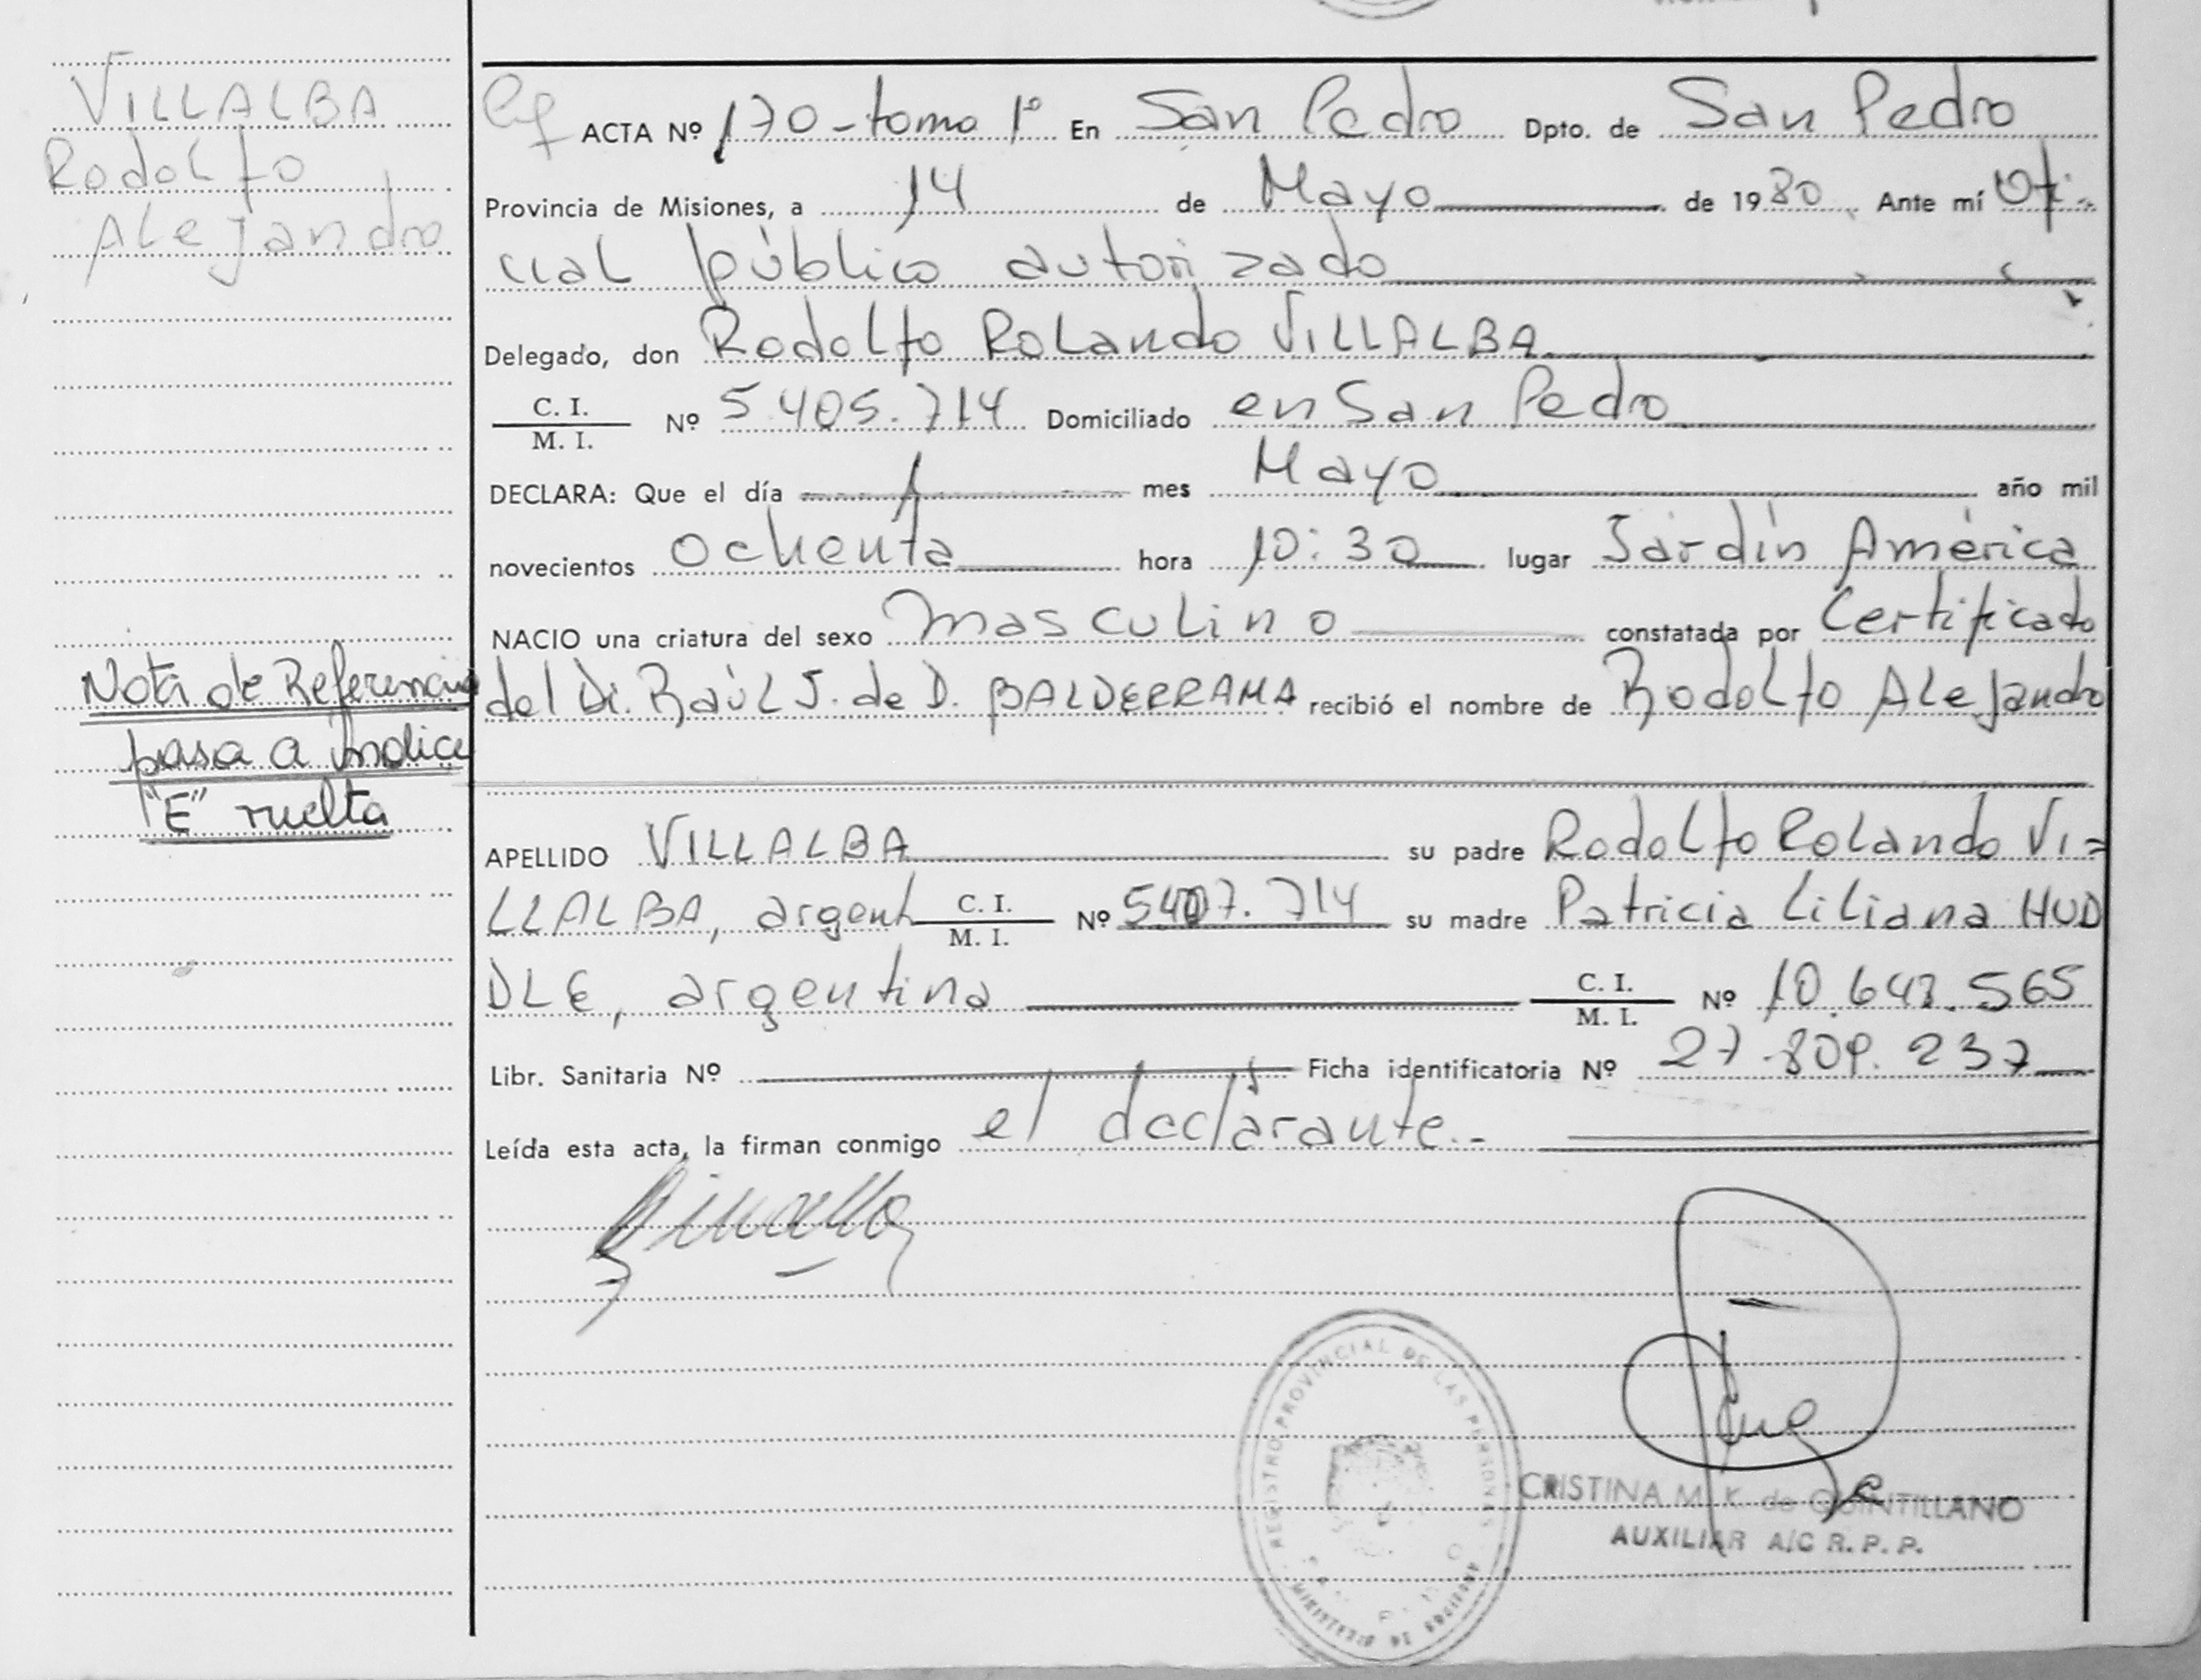 VILLALBA
Rodolfo
Alejandro
Nota de Referencia
pasa a Indice
"E" vuelta
ACTA Nº 170 - tomo 1º En San Pedro Dpto. de San Pedro
Provincia de Misiones, a 14 de Mayo de 1980. Ante mí Ofi-
cial público autorizado
Delegado, don Rodolfo Rolando VILLALBA
C. I.
M. I.
Nº 5.405.714 Domiciliado en San Pedro
DECLARA: Que el día 1 mes Mayo año mil
novecientos ochenta hora 10:30 lugar Jardín América
NACIO una criatura del sexo masculino constatada por Certificado
del Dr. Raúl J. de D. BALDERRAMA recibió el nombre de Rodolfo Alejandro
APELLIDO VILLALBA su padre Rodolfo Rolando VI=
LLALBA, argent C. I.
M. I.
Nº 5407.714 su madre Patricia Liliana HUD
DLE, argentina C. I.
M. I.
Nº 10.643.565
Libr. Sanitaria Nº Ficha identificatoria Nº 27.809.237
Leída esta acta, la firman conmigo el declarante.-
REGISTRO PROVINCIAL DE LAS PERSONAS
CRISTINA M. K. de QUINTILLANO
AUXILIAR A/C R. P. P.